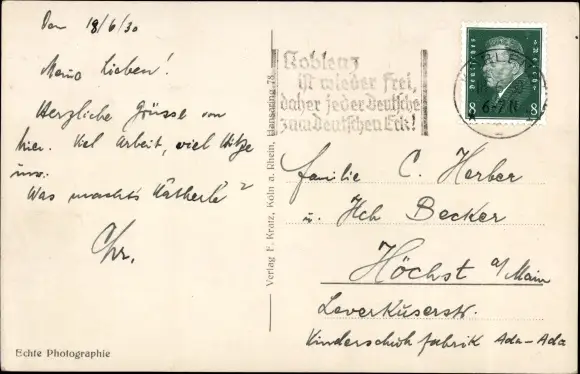 Den 18/6/30
Meine Lieben!
Herzliche Grüsse von
hier. Viel Arbeit, viel Hitze
usw.
Was macht's Kätherle?
Chr.
Echte Photographie
Verlag F. Kratz, Köln a. Rhein, Hansaring 78.
Koblenz
ist wieder frei,
daher jeder Deutsche
zum Deutschen Eck!
Deutsches Reich
8 8
6-7N
Familie C. Herber
u. Hch Becker
Höchst a/Main
Leverkuserstr.
Kinderschuhfabrik Ada-Ada